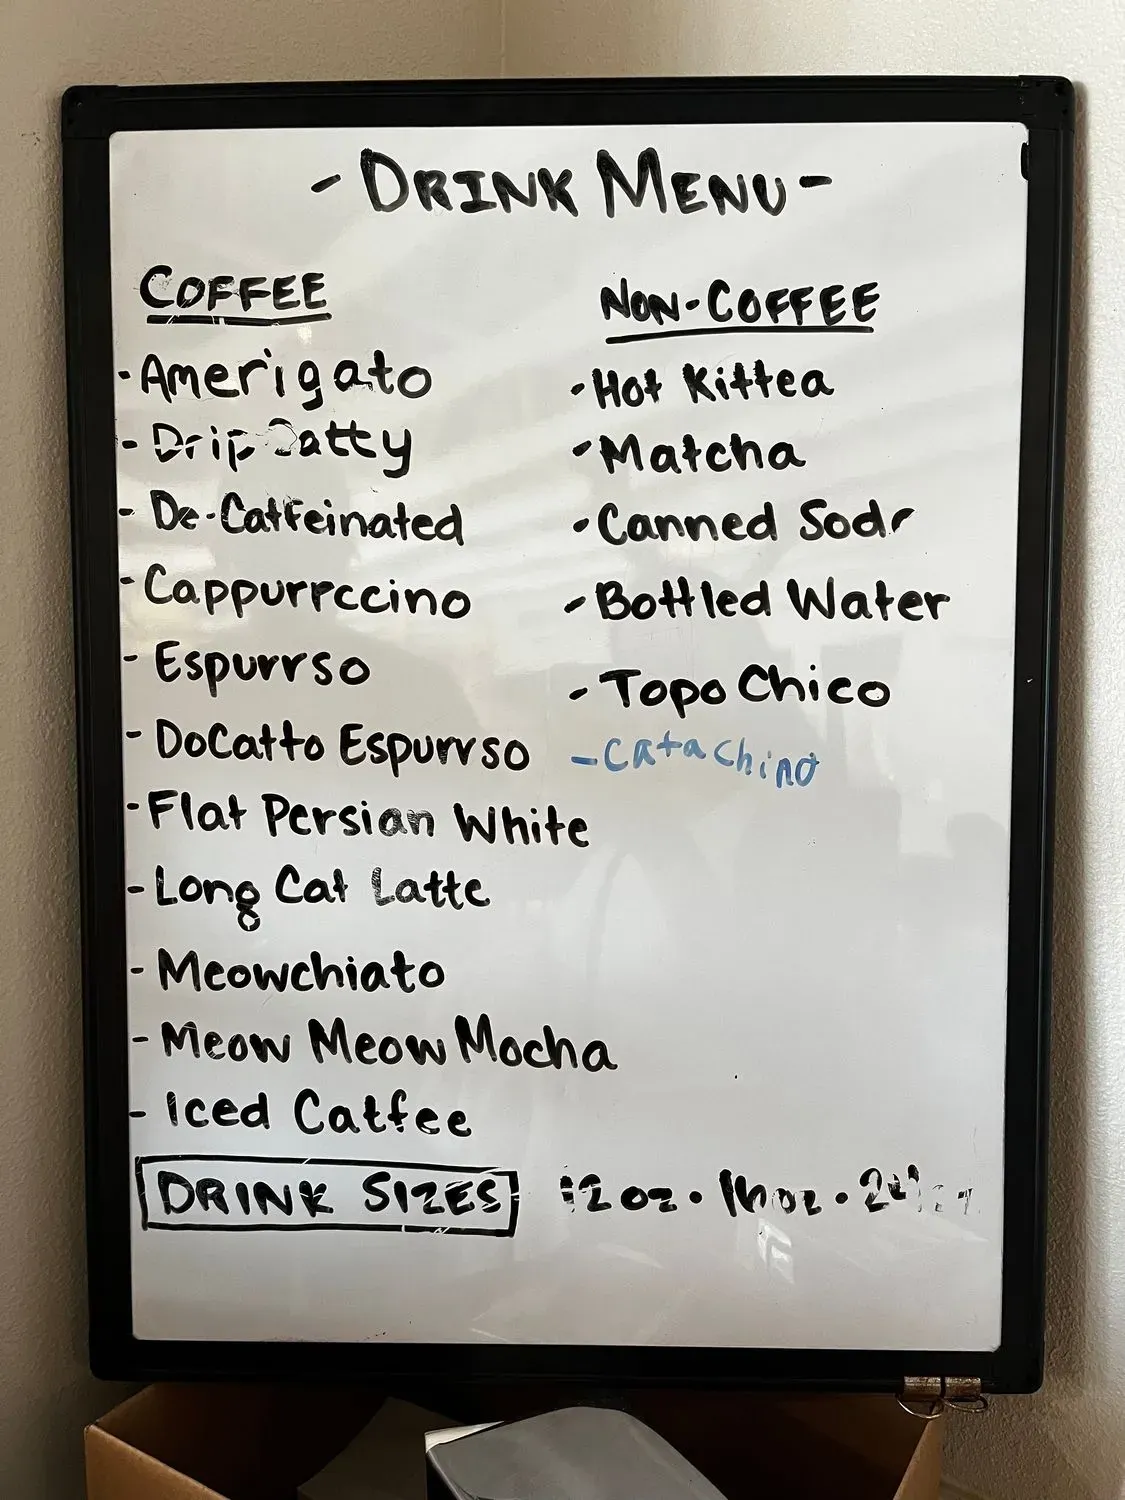 - DRINK MENU -
COFFEE
- Amerigato
- Drip Catty
- De-Catfeinated
- Cappurrccino
- Espurrso
- DoCatto Espurrso
- Flat Persian White
- Long Cat Latte
- Meowchiato
- Meow Meow Mocha
- Iced Catfee
NON-COFFEE
- Hot Kittea
- Matcha
- Canned Soda
- Bottled Water
- Topo Chico
- Catachino
DRINK SIZES 12 oz • 16 oz • 24